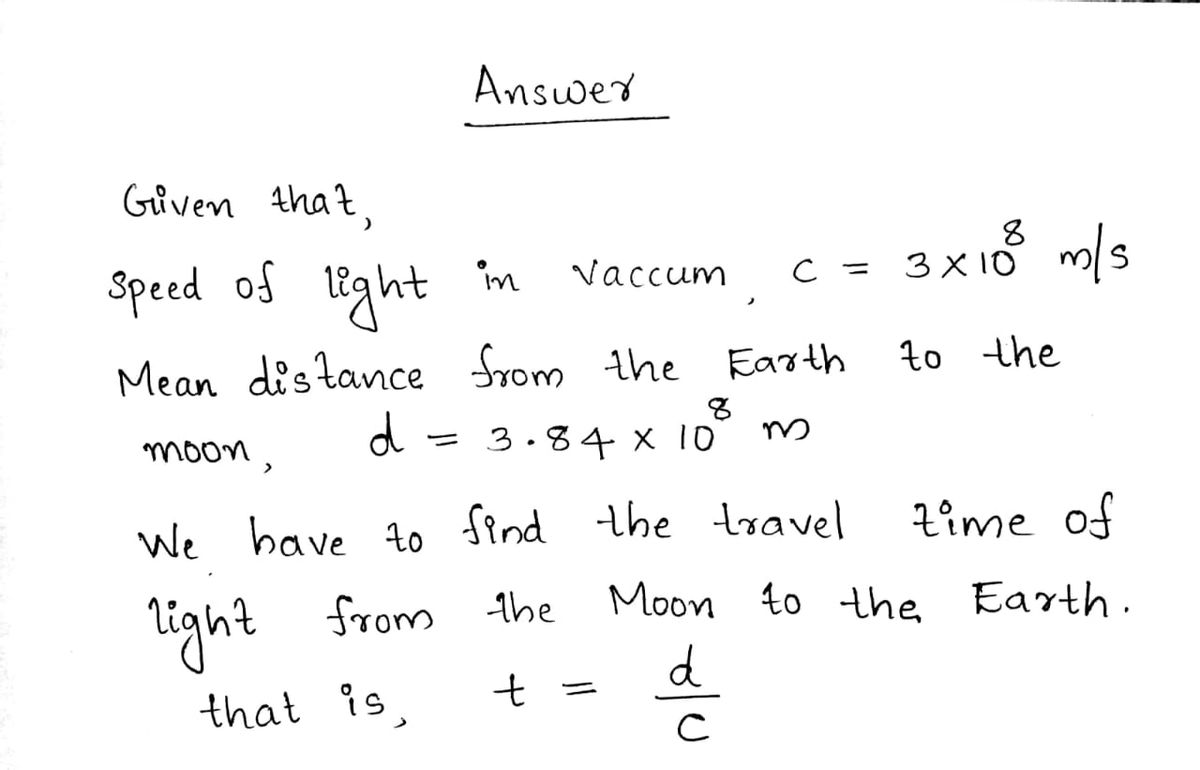 Answer
Given that,
Speed of light in vaccum, c = 3 × 10⁸ m/s
Mean distance from the Earth to the
moon, d = 3.84 × 10⁸ m
We have to find the travel time of
light from the Moon to the Earth.
that is, t = d/c